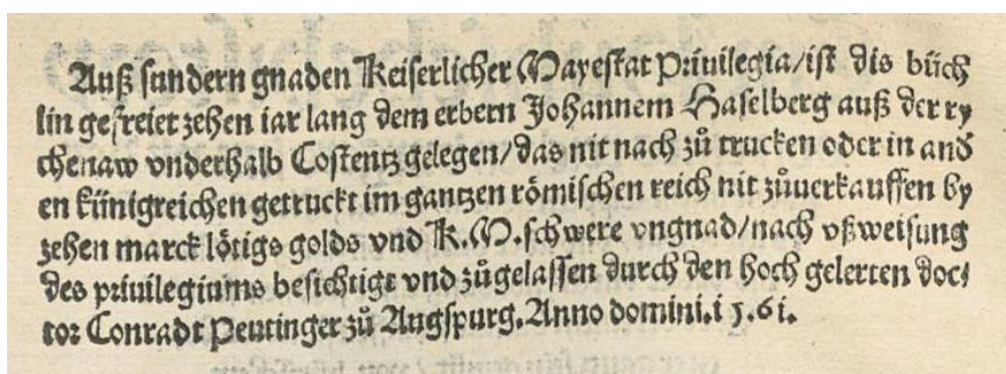 Auß sundern gnaden Keiserlicher Mayestat Priuilegia/ist dis büch
lin gefreiet zehen iar lang dem erbern Johannem Haselberg auß der ry
chenaw vnderhalb Costentz gelegen/das nit nach zů trucken oder in and
en künigreichen getruckt im gantzen römischen reich nit zůuerkauffen by
zehen marck lötigs golds vnd K.M.schwere vngnad/nach vßweisung
des priuilegiums besichtigt vnd zůgelassen durch den hoch gelerten doc⸗
tor Conradt Peutinger zů Augspurg.Anno domini.i 5.6i.